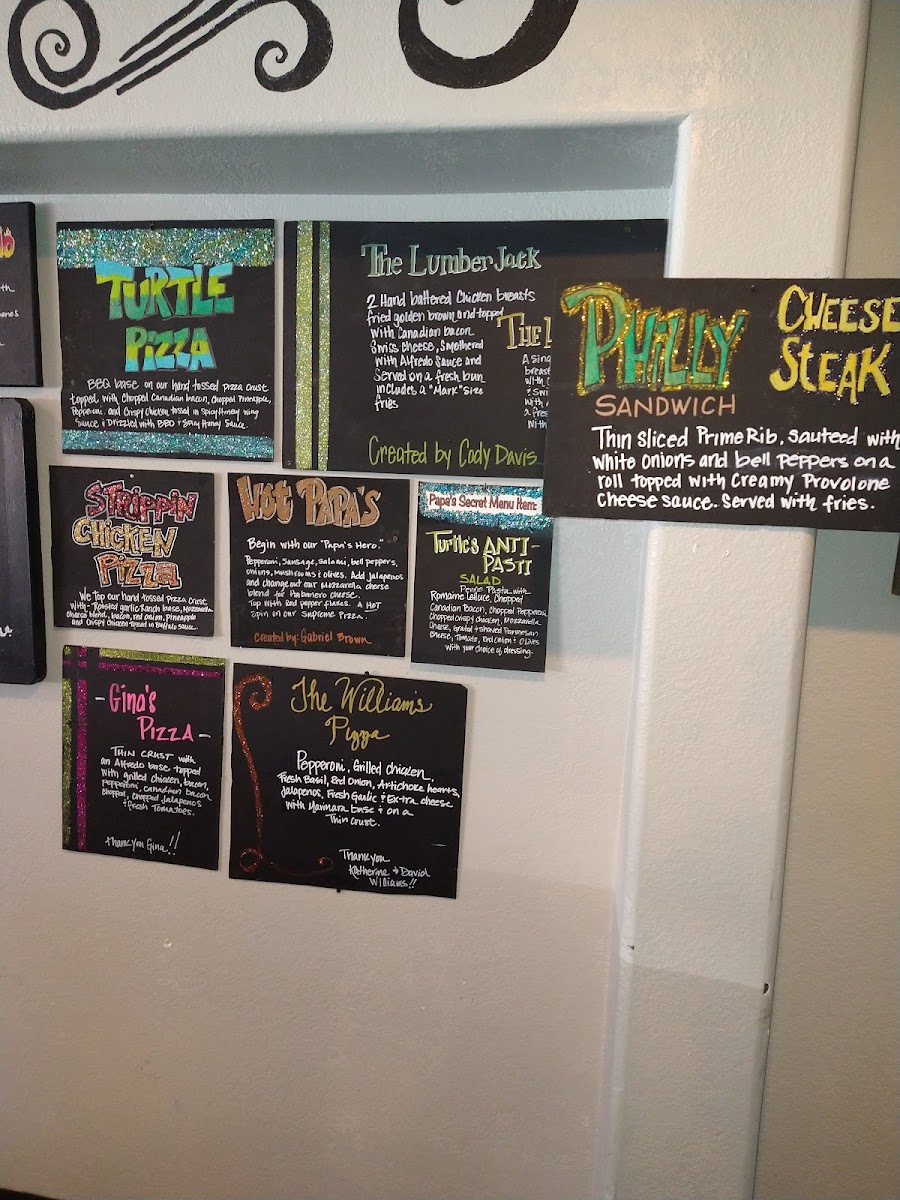 TURTLE
PIZZA
BBQ base on our hand-tossed pizza crust
topped with Chopped Canadian bacon, Chopped Pineapple,
Pepperoni, and Crispy Chicken tossed in Spicy Honey wing
Sauce & Drizzled with BBQ & Spicy Honey Sauce.
The LumberJack
2 Hand battered Chicken breasts
fried golden brown and topped
with Canadian bacon
Swiss Cheese, Smothered
with Alfredo Sauce and
Served on a fresh bun
includes a "Mark" Size
fries
Created by Cody Davis
THE
A sing
breast
with
& Swi
with
2 free
with
PHILLY
CHEESE
STEAK
SANDWICH
Thin Sliced Prime Rib, Sauteed with
White Onions and bell peppers on a
roll topped with Creamy Provolone
Cheese sauce. Served with fries.
STRIPPIN
CHICKEN
PIZZA
We top our hand tossed Pizza Crust
with - Roasted garlic Ranch base, Mozzarella
cheese blend, bacon, red onion, Pineapple
and Crispy Chicken tossed in Buffalo sauce.
HOT PAPA'S
Begin with our "Papa's Hero."
Pepperoni, Sausage, Salami, bell peppers,
onions, mushrooms & olives. Add Jalapenos
and change out our Mozzarella cheese
blend for Habanero cheese.
Top with red pepper flakes. A HOT
Spin on our Supreme Pizza.
Created by: Gabriel Brown
Papa's Secret Menu Item:
Turtle's ANTI-
PASTI
SALAD
Penne Pasta with
Romaine Lettuce, Chopped
Canadian Bacon, Chopped Pepperoni,
Chopped crispy chicken, Mozzarella
Cheese, Grated & Shaved Parmesan
Cheese, Tomato, Red Onion & Olives
with your choice of dressing.
- Gina's
PIZZA -
THIN CRUST with
an Alfredo base topped
with grilled chicken, bacon,
Pepperoni, Canadian bacon
Chopped, Chopped Jalapenos
& fresh Tomatoes.
thank you Gina!!
The William's
Pizza
Pepperoni, Grilled chicken,
Fresh Basil, Red Onion, Artichoke hearts,
Jalapenos, Fresh Garlic & Extra cheese
with Marinara base & on a
Thin Crust.
Thank you
Katherine & David
Williams!!